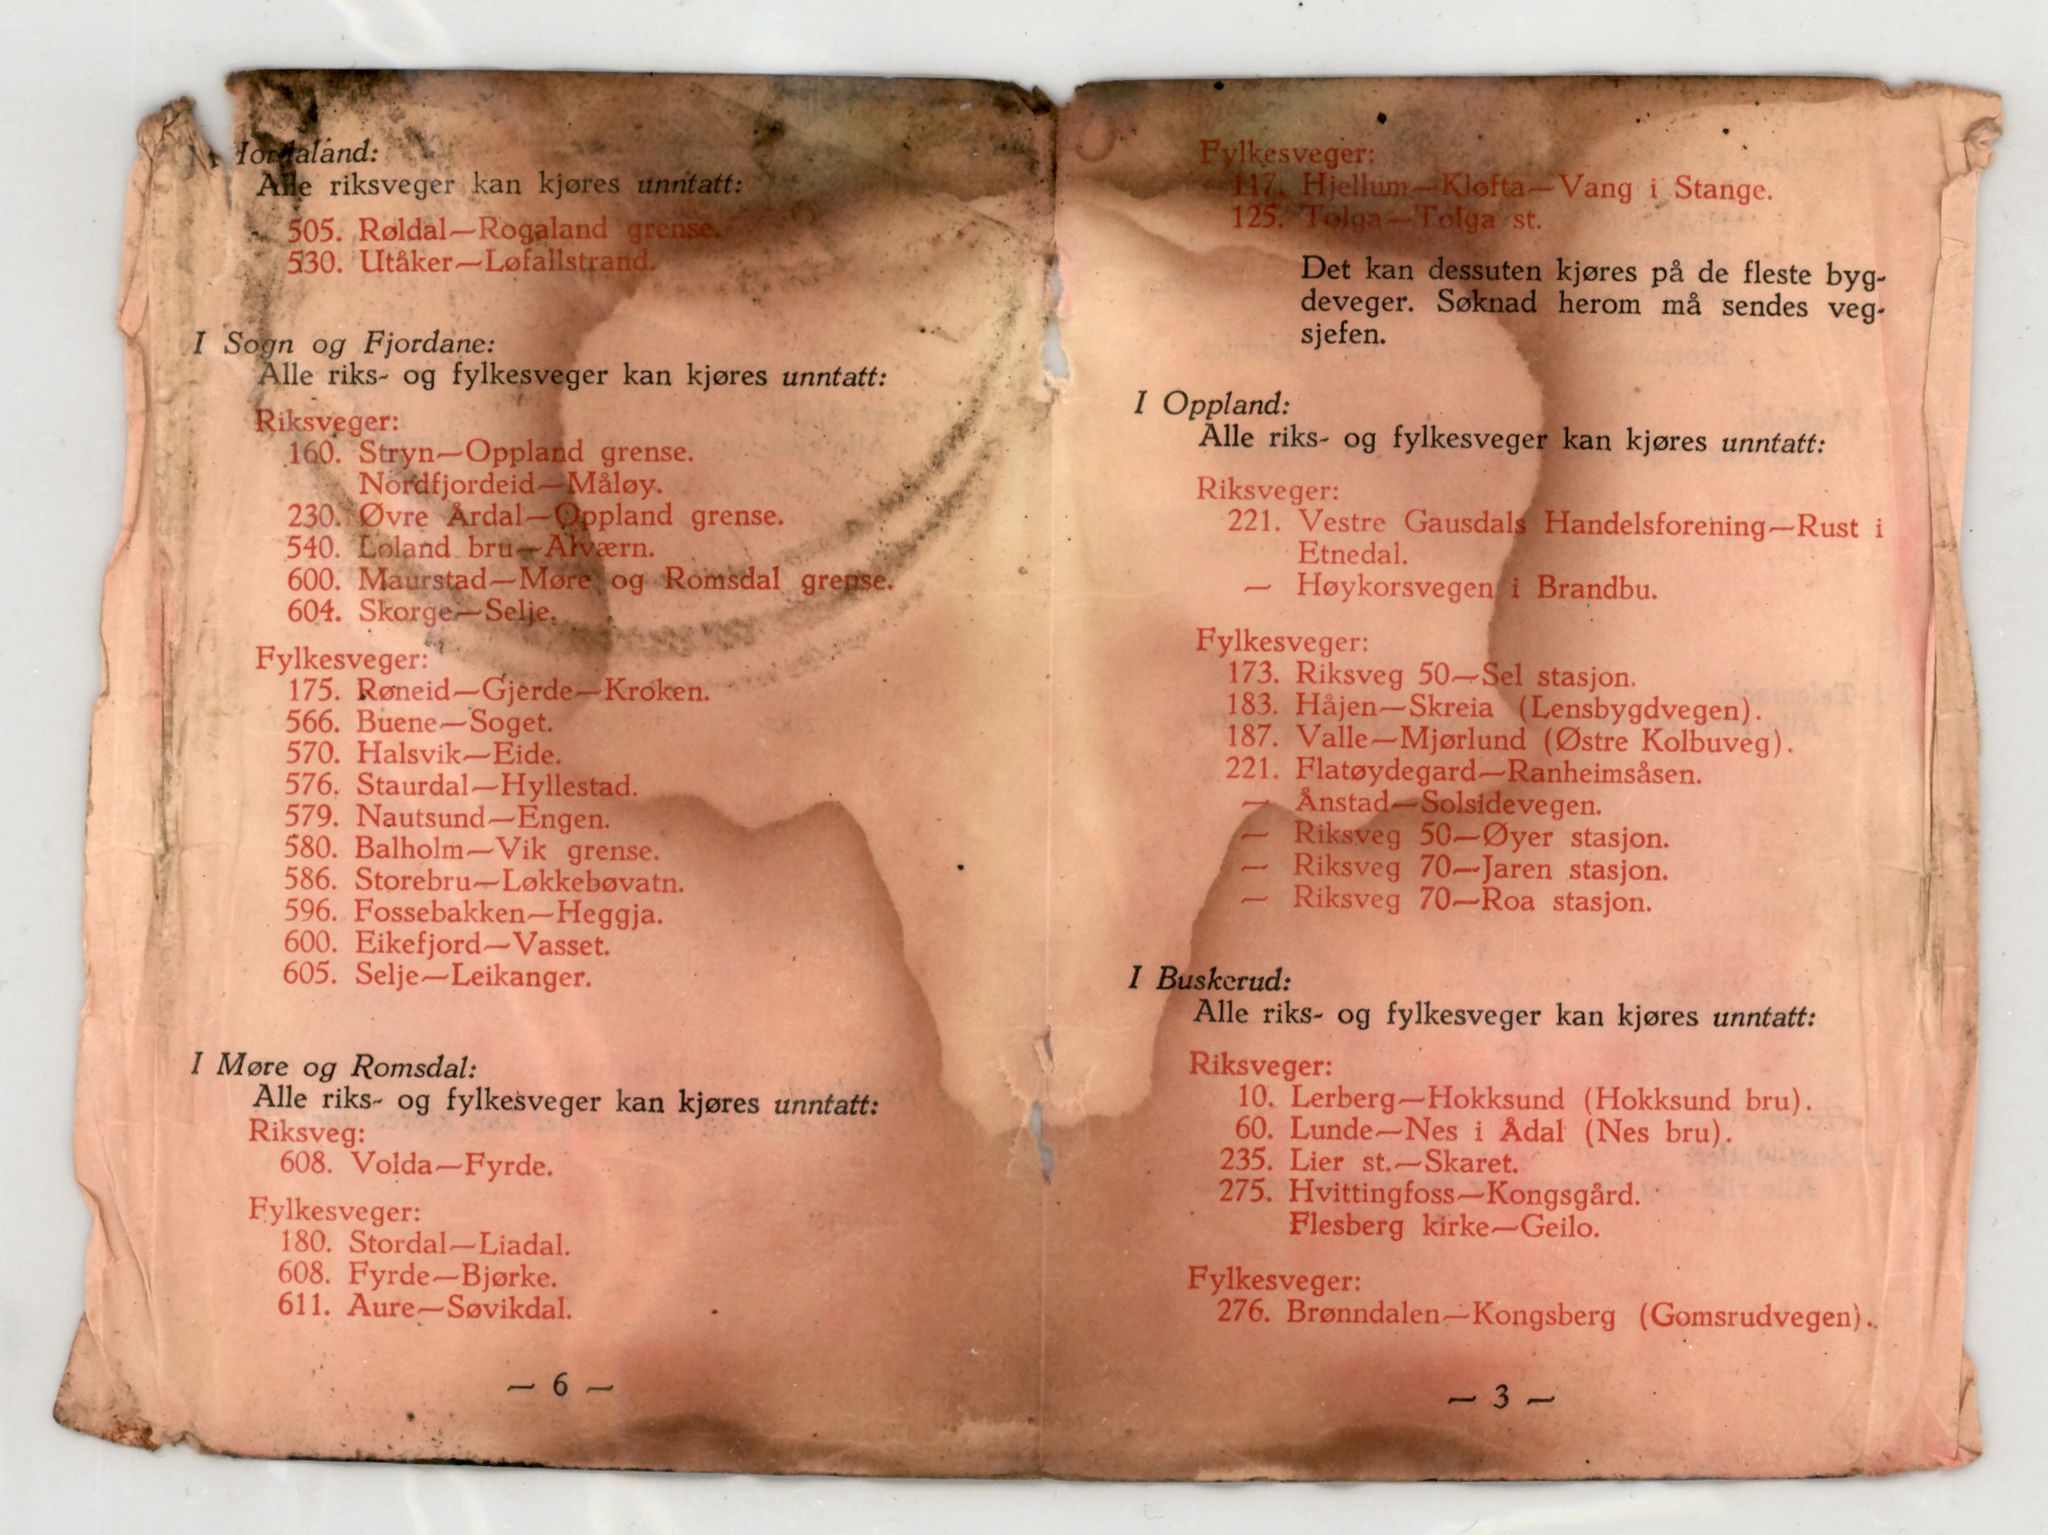 I Hordaland:
Alle riksveger kan kjøres unntatt:
505. Røldal—Rogaland grense.
530. Utåker—Løfallstrand.
I Sogn og Fjordane:
Alle riks- og fylkesveger kan kjøres unntatt:
Riksveger:
160. Stryn—Oppland grense.
Nordfjordeid—Måløy.
230. Øvre Årdal—Oppland grense.
540. Loland bru—Alværn.
600. Maurstad—Møre og Romsdal grense.
604. Skorge—Selje.
Fylkesveger:
175. Røneid—Gjerde—Kroken.
566. Buene—Soget.
570. Halsvik—Eide.
576. Staurdal—Hyllestad.
579. Nautsund—Engen.
580. Balholm—Vik grense.
586. Storebru—Løkkebøvatn.
596. Fossebakken—Heggja.
600. Eikefjord—Vasset.
605. Selje—Leikanger.
I Møre og Romsdal:
Alle riks- og fylkesveger kan kjøres unntatt:
Riksveg:
608. Volda—Fyrde.
Fylkesveger:
180. Stordal—Liadal.
608. Fyrde—Bjørke.
611. Aure—Søvikdal.
— 6 —
Fylkesveger:
117. Hjellum—Kløfta—Vang i Stange.
125. Tolga—Tolga st.
Det kan dessuten kjøres på de fleste byg-
deveger. Søknad herom må sendes veg-
sjefen.
I Oppland:
Alle riks- og fylkesveger kan kjøres unntatt:
Riksveger:
221. Vestre Gausdals Handelsforening—Rust i
Etnedal.
— Høykorsvegen i Brandbu.
Fylkesveger:
173. Riksveg 50—Sel stasjon.
183. Håjen—Skreia (Lensbygdvegen).
187. Valle—Mjørlund (Østre Kolbuveg).
221. Flatøydegard—Ranheimsåsen.
— Ånstad—Solsidevegen.
— Riksveg 50—Øyer stasjon.
— Riksveg 70—Jaren stasjon.
— Riksveg 70—Roa stasjon.
I Buskerud:
Alle riks- og fylkesveger kan kjøres unntatt:
Riksveger:
10. Lerberg—Hokksund (Hokksund bru).
60. Lunde—Nes i Ådal (Nes bru).
235. Lier st.—Skaret.
275. Hvittingfoss—Kongsgård.
Flesberg kirke—Geilo.
Fylkesveger:
276. Brønndalen—Kongsberg (Gomsrudvegen).
— 3 —